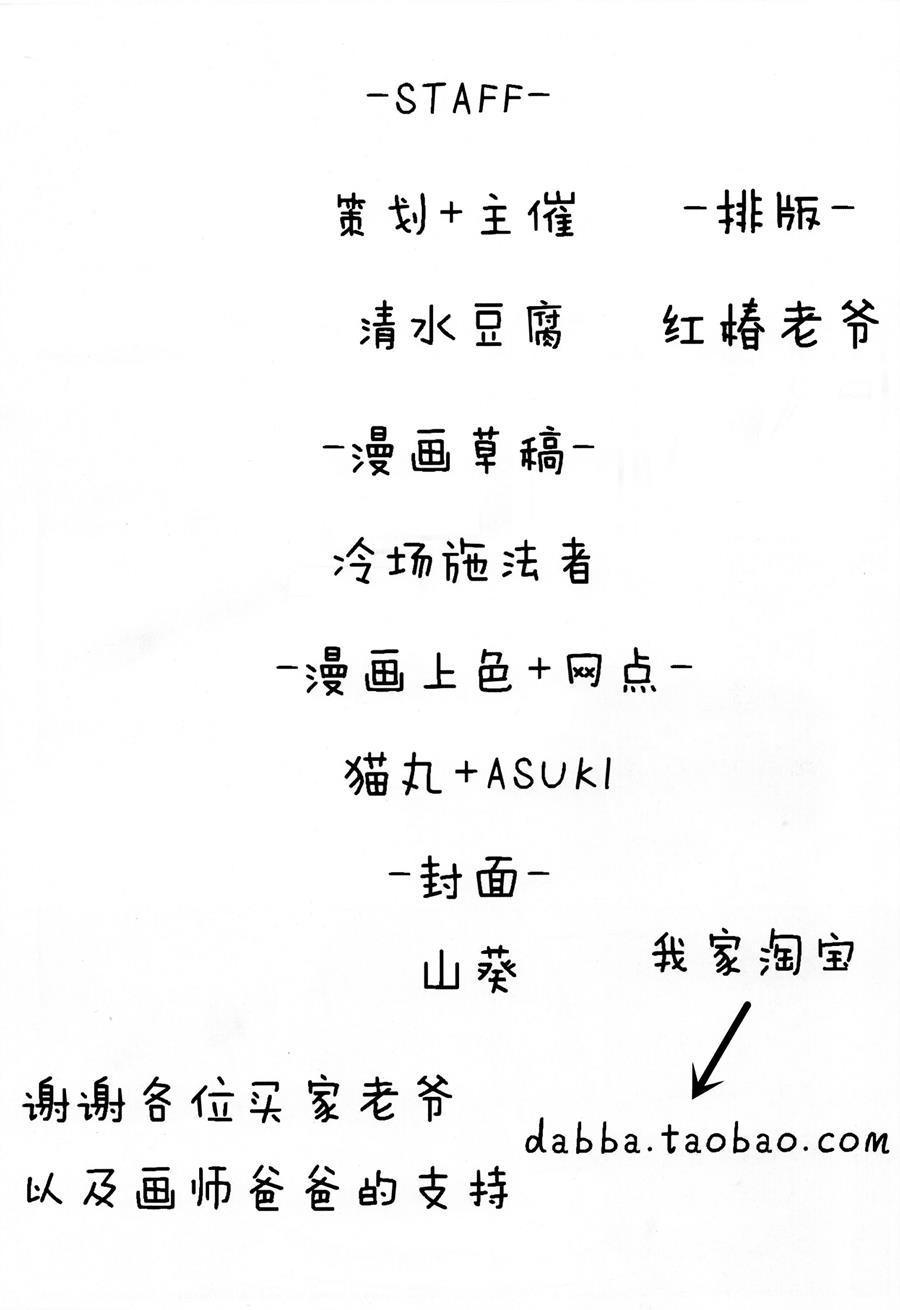 -STAFF-
策划+主催
-排版-
清水豆腐
红椿老爷
-漫画草稿-
冷场施法者
-漫画上色+网点-
猫丸+ASUKI
-封面-
山葵
我家淘宝
dabba.taobao.com
谢谢各位买家老爷
以及画师爸爸的支持